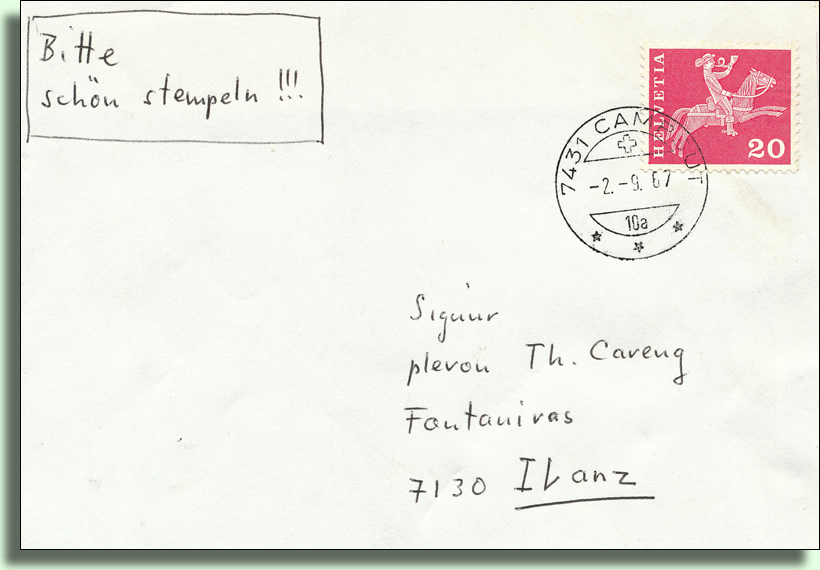 Bitte
schön stempeln !!!
HELVETIA
20
7431 CAM UT
-2.-9. 67
10a
Signur
plevon Th. Caveng
Fontanivas
7130 Ilanz